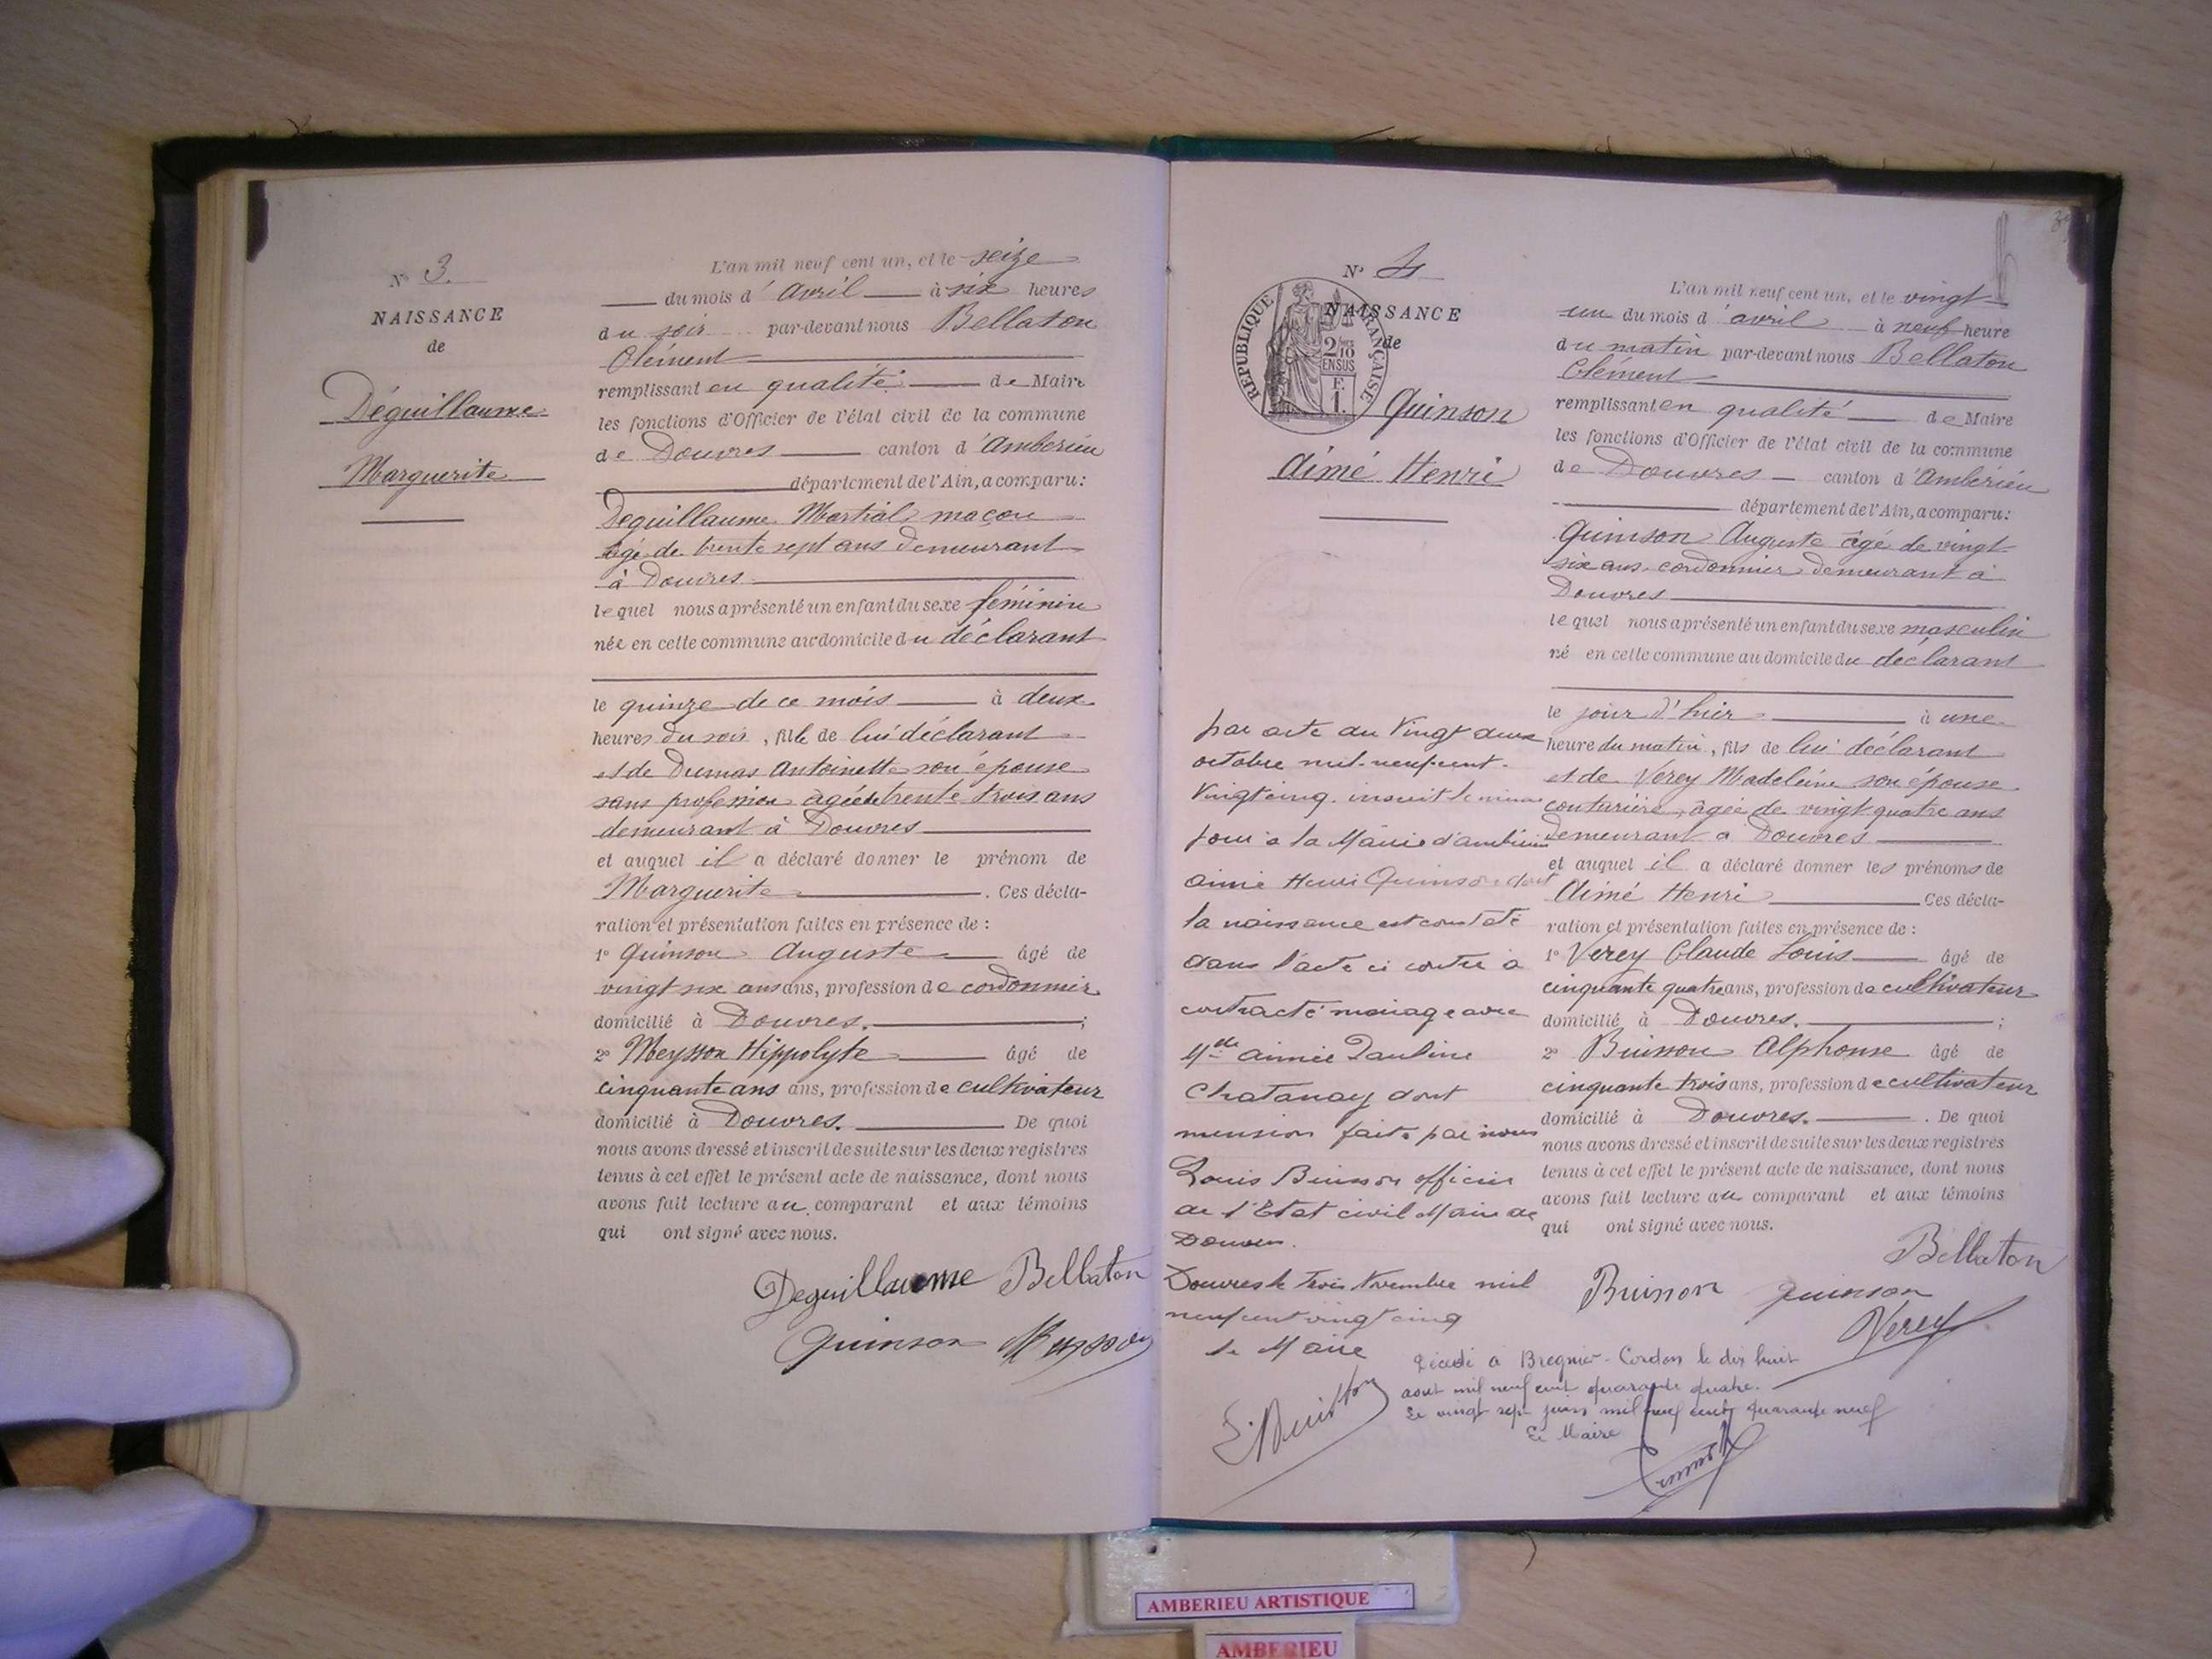 N° 3.
NAISSANCE
de
Déguillaume
Marguerite
L'an mil neuf cent un, et le seize
du mois d'avril à six heures
du soir par-devant nous Bellaton
Clément
remplissant en qualité de Maire
les fonctions d'Officier de l'état civil de la commune
de Douvres canton d'Ambérieu
département de l'Ain, a comparu:
Deguillaume Martial maçon
âgé de trente sept ans demeurant
à Douvres
lequel nous a présenté un enfant du sexe féminin
née en cette commune au domicile du déclarant
le quinze de ce mois à deux
heures du soir, fille de lui déclarant
et de Dumas Antoinette son épouse
sans profession âgée de trente trois ans
demeurant à Douvres
et auquel il a déclaré donner le prénom de
Marguerite. Ces décla-
ration et présentation faites en présence de :
1° Quinson Auguste âgé de
vingt six ans ans, profession de cordonnier
domicilié à Douvres. ;
2° Meysson Hippolyte âgé de
cinquante ans ans, profession de cultivateur
domicilié à Douvres. De quoi
nous avons dressé et inscrit de suite sur les deux registres
tenus à cet effet le présent acte de naissance, dont nous
avons fait lecture au comparant et aux témoins
qui ont signé avec nous.
Deguillaume Bellaton
Quinson Meysson
N° 4
NAISSANCE
de
REPUBLIQUE FRANÇAISE
2/10
EN SUS
F.
1.
Quinson
Aimé Henri
L'an mil neuf cent un, et le vingt
un du mois d'avril à neuf heure
du matin par-devant nous Bellaton
Clément
remplissant en qualité de Maire
les fonctions d'Officier de l'état civil de la commune
de Douvres canton d'Ambérieu
département de l'Ain, a comparu:
Quinson Auguste âgé de vingt
six ans cordonnier demeurant à
Douvres
lequel nous a présenté un enfant du sexe masculin
né en cette commune au domicile du déclarant
le jour d'hier à une
heure du matin, fils de lui déclarant
et de Verey Madeleine son épouse
couturière, âgée de vingt quatre ans
demeurant à Douvres
et auquel il a déclaré donner les prénoms de
Aimé Henri Ces décla-
ration et présentation faites en présence de :
1° Verey Claude Louis âgé de
cinquante quatre ans, profession de cultivateur
domicilié à Douvres. ;
2° Buisson Alphonse âgé de
cinquante trois ans, profession de cultivateur
domicilié à Douvres. . De quoi
nous avons dressé et inscrit de suite sur les deux registres
tenus à cet effet le présent acte de naissance, dont nous
avons fait lecture au comparant et aux témoins
qui ont signé avec nous.
Bellaton
Buisson Quinson
Verey
par acte du Vingt deux
octobre mil-neuf-cent-
Vingt cinq. inscrit le même
jour à la Mairie d'ambérieu
aimé Henri Quinson dont
la naissance est constaté
dans l'acte ci contre à
contracté mariage avec
Mlle aimée Pauline
Chatanay dont
mension faite par nous
Louis Buisson officier
de l'Etat civil Maire de
Douvres.
Douvres le trois Novembre mil
neuf cent vingt cinq
le Maire
L. Buisson
Décédé à Bregnier-Cordon le dix huit
aout mil neuf cent quarante quatre.
Le vingt sept juin mil neuf cent quarante neuf
Le Maire
AMBERIEU ARTISTIQUE
AMBERIEU